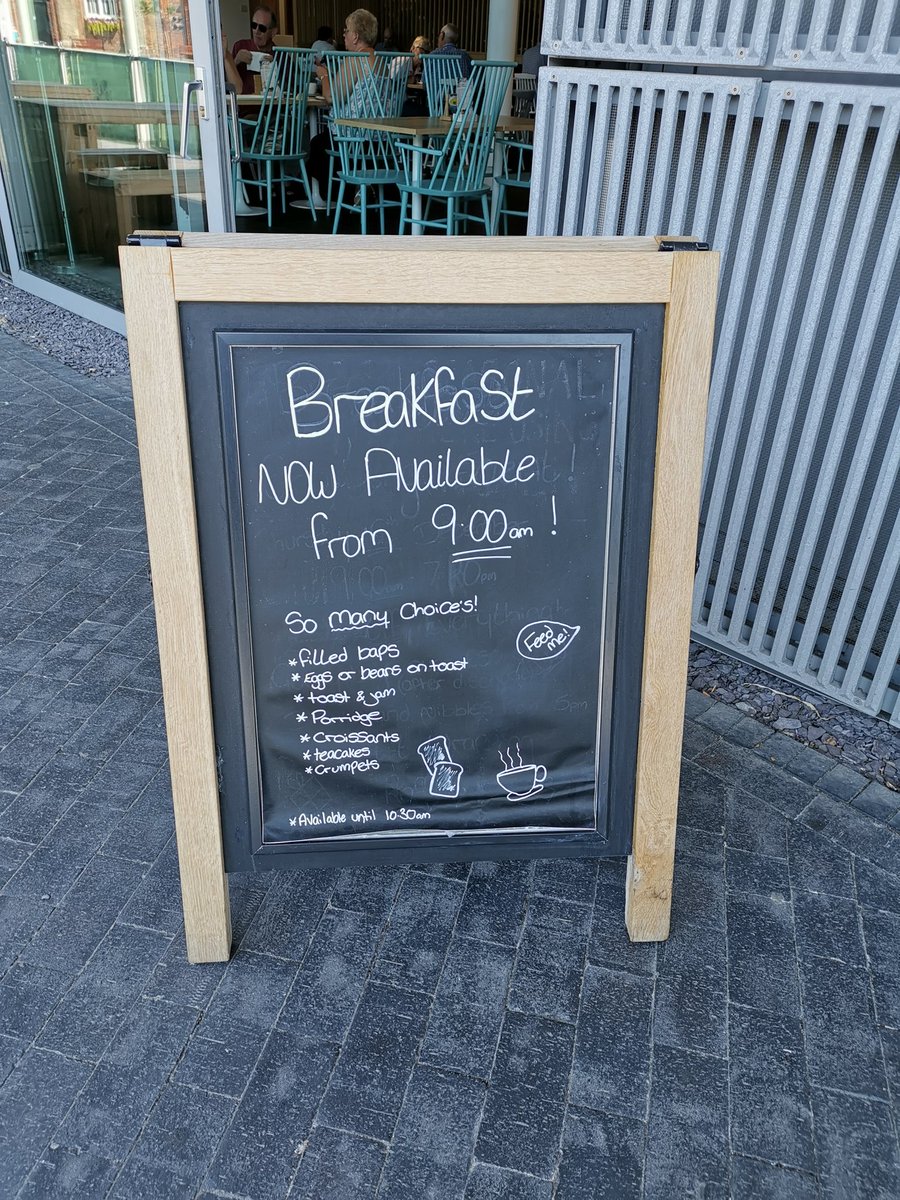 Breakfast
NOW Available
from 9:00am !
So many Choice's!
Feed
me!
*filled baps
*Eggs or beans on toast
*toast & jam
*Porridge
*Croissants
*teacakes
*Crumpets
*Available until 10:30am